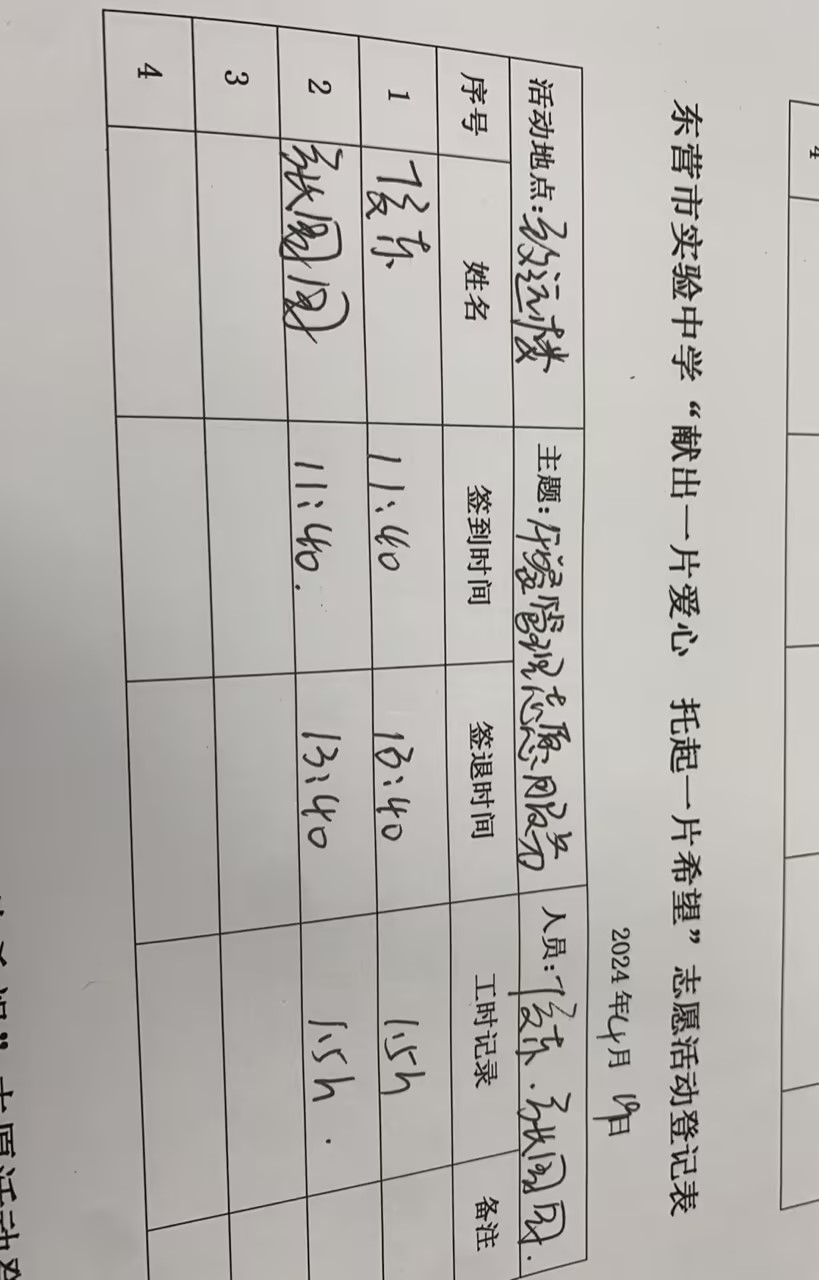 东营市实验中学“献出一片爱心 托起一片希望”志愿活动登记表
2024年4月19日
活动地点：致远楼 主题：午餐管理志愿服务 人员：徐东.张圆圆.
序号 姓名 签到时间 签退时间 工时记录 备注
1 徐东 11:40 13:40 1.5h
2 张圆圆 11:40. 13:40 1.5h.
3
4
4